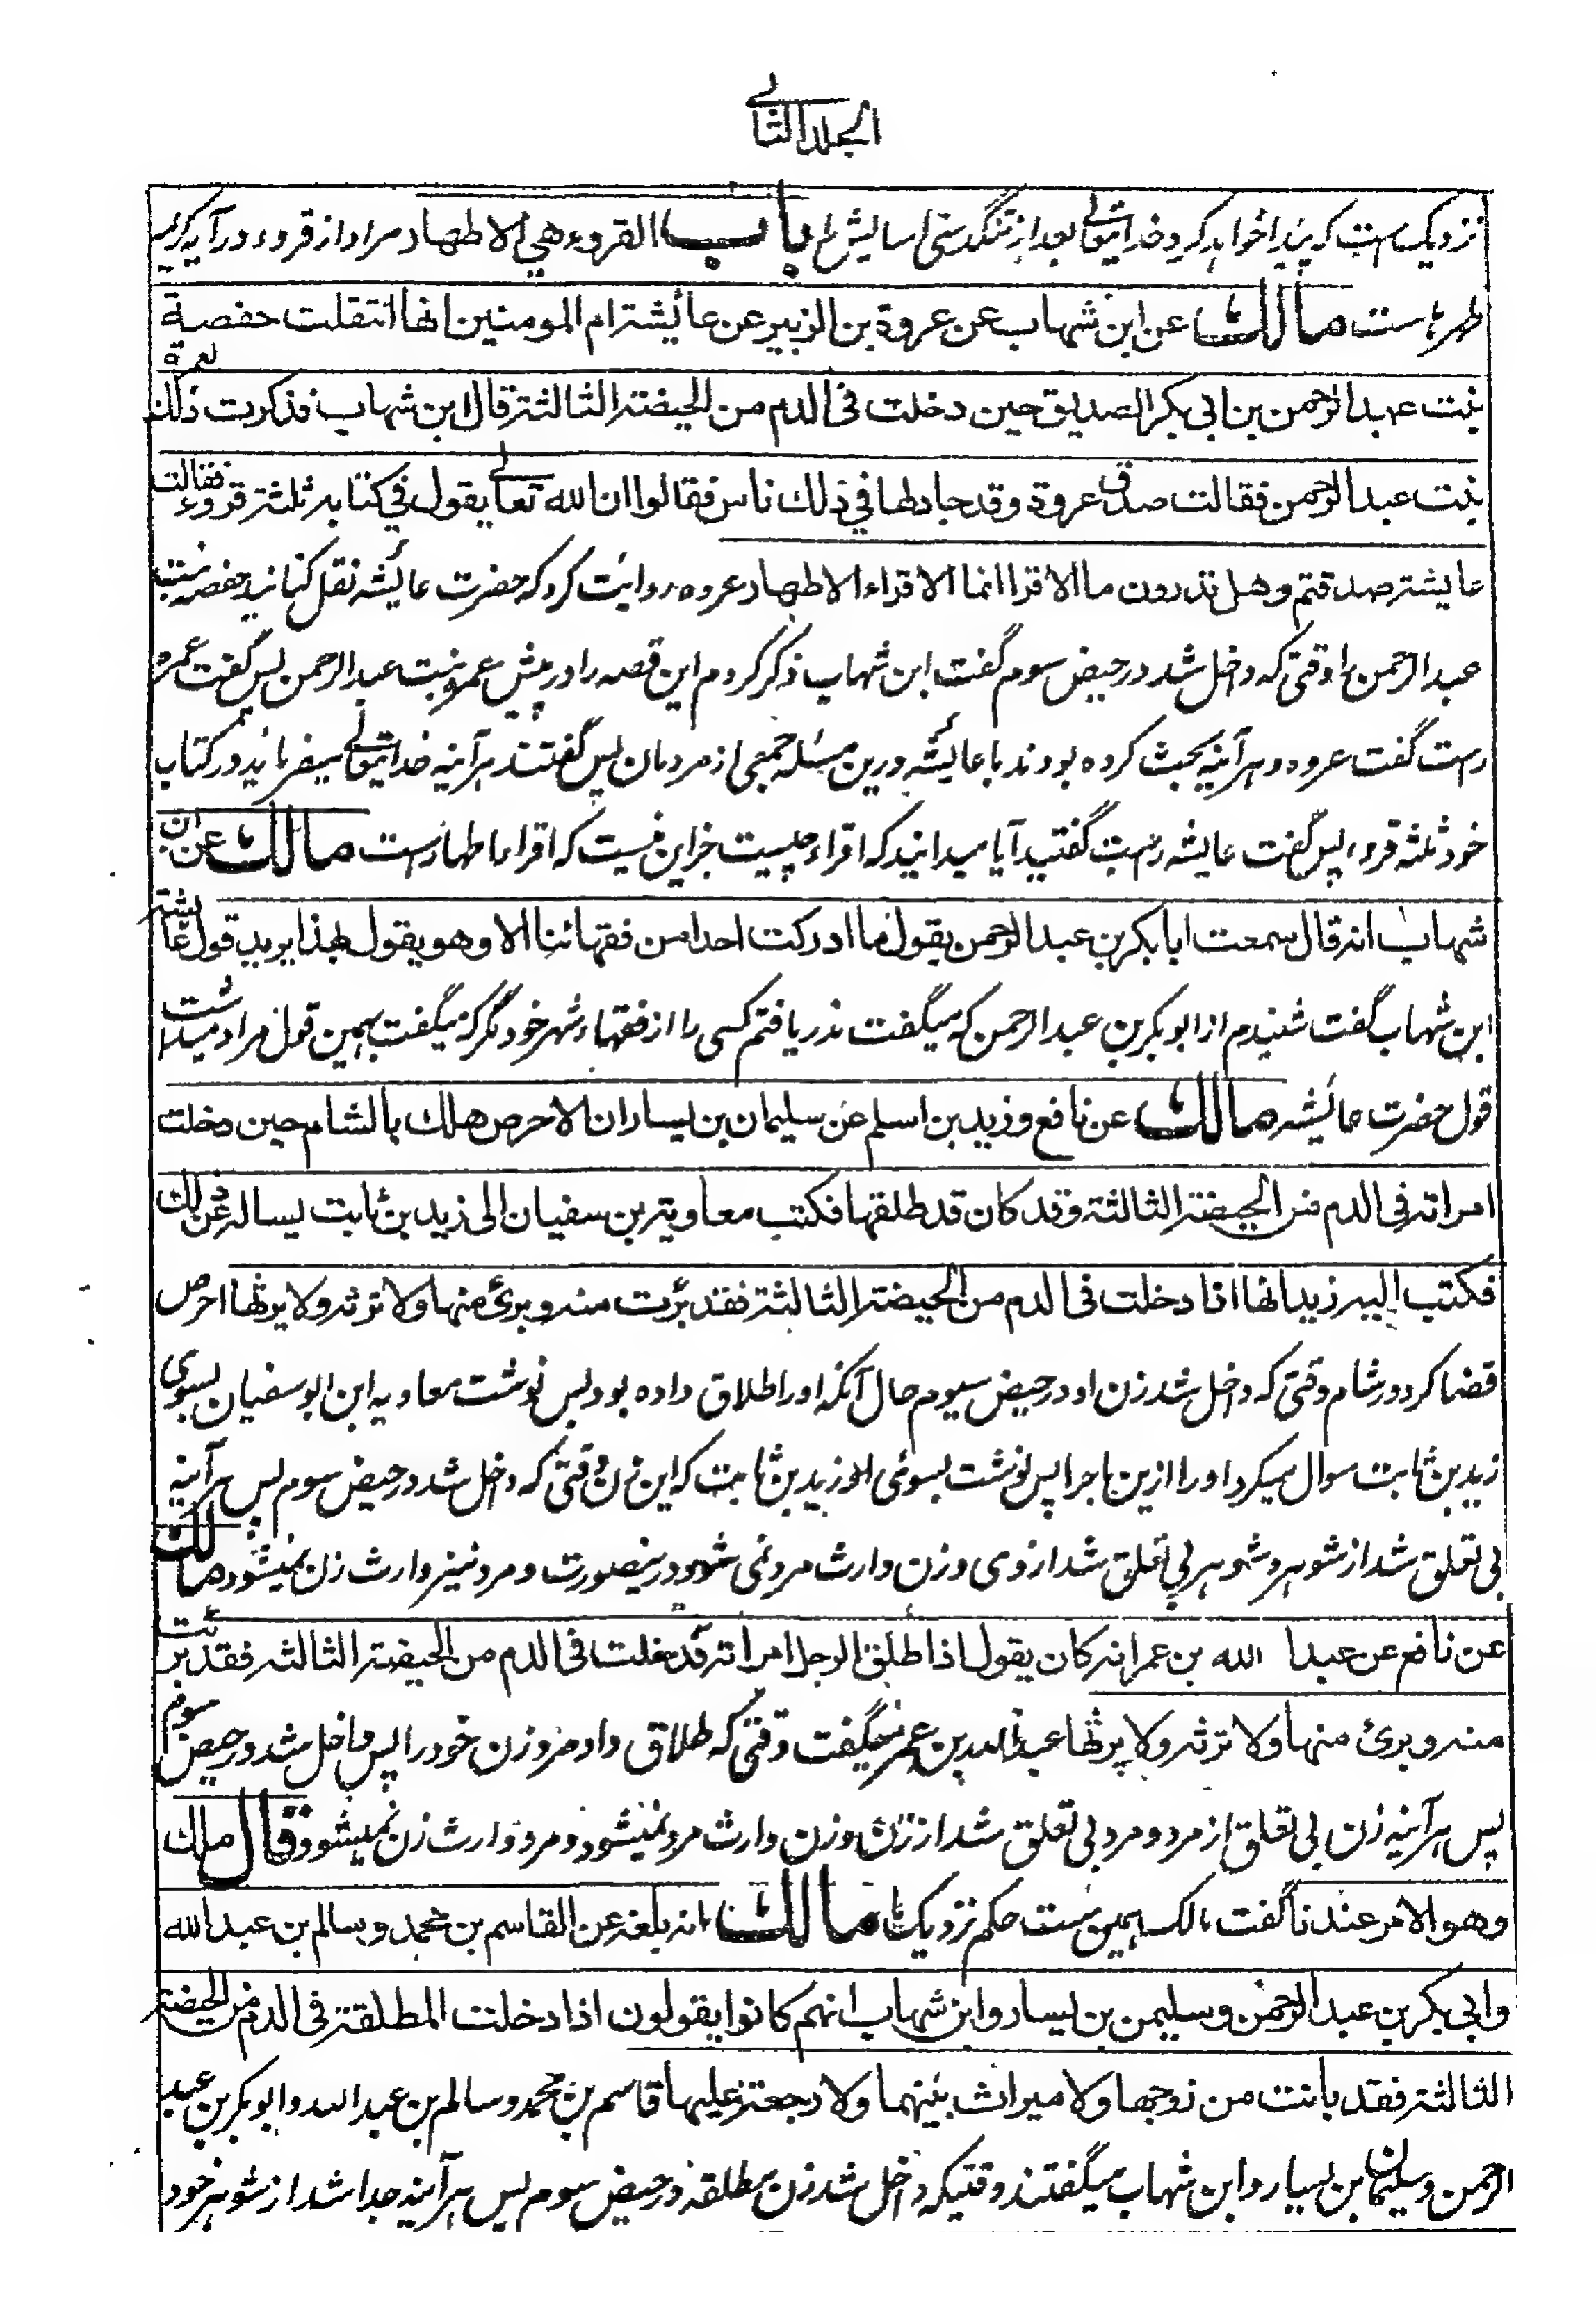 الجلد الثانی
نزدیک ست که پیدا خواهد کرد خدایتعالی بعد از تنگدستی آسایش را باب القروء هي الاطهار مراد از قروء در آیه کریمه
طهرهاست مالك عن ابن شهاب عن عروة بن الزبير عن عائيشة ام المومنين انها انتقلت حفصة
بنت عبد الرحمن بن ابي بكر الصديق حين دخلت في الدم من الحيضة الثالثة قال ابن شهاب فذكرت ذلك لعمرة
بنت عبد الرحمن فقالت صدق عروة وقد جادلها في ذلك ناس فقالوا ان الله تعالى يقول في كتابه ثلثة قروء فقالت
عايشة صدقتم وهل تدرون ما الاقرا انما الاقراء الاطهار عروه روایت کرد که حضرت عائیشه نقل کنانید حفصه بنت
عبد الرحمن را وقتی که داخل شد در حیض سوم گفت ابن شهاب ذکر کردم این قصه را در پیش عمره بنت عبد الرحمن پس گفت عمره
راست گفت عروه و هر آینه بحث کرده بودند با عائیشه درین مسئله جمعی از مردمان پس گفتند هر آینه خدایتعالی میفرماید در کتاب
خود ثلثه قروء پس گفت عایشه راست گفتید آیا میدانید که اقراء چیست جز این نیست که اقراء اطهارست مالك عن ابن
شهاب انه قال سمعت ابا بكر بن عبد الرحمن يقول ما ادركت احدا من فقهائنا الا وهو يقول هذا يريد قول عائشة
ابن شهاب گفت شنیدم از ابوبکر بن عبد الرحمن که میگفت ندریافتم کسی را از فقهاء شهر خود مگر که میگفت همین قول مراد میداشت
قول حضرت عائیشه مالك عن نافع وزيد بن اسلم عن سليمان بن يسار ان الاحوص هلك بالشام حين دخلت
امراته في الدم من الحيضة الثالثة وقد كان قد طلقها فكتب معاوية بن سفيان الى زيد بن ثابت يساله عن ذلك
فكتب اليه زيد انها اذا دخلت في الدم من الحيضة الثالثة فقد برئت منه وبرئ منها ولا ترثه ولا يرثها احوص
قضا کرد در شام وقتی که داخل شد زن او در حیض سیوم حال آنکه او را طلاق داده بود پس نوشت معاویه ابن ابو سفیان بسوی
زید بن ثابت سوال میکرد او را ازین ماجرا پس نوشت بسوئی او زید بن ثابت که این زن وقتی که داخل شد در حیض سوم پس هر آینه
بی تعلق شد از شوهر و شوهر بی تعلق شد از وی و زن وارث مرد نمی شود درینصورت و مرد نیز وارث زن نمیشود مالك
عن نافع عن عبد الله بن عمر انه كان يقول اذا طلق الرجل امراته فدخلت في الدم من الحيضة الثالثه فقد برئت
منه وبرئ منها ولا ترثه ولا يرثها عبد الله بن عمر میگفت وقتی که طلاق داد مرد زن خود را پس داخل شد در حیض سوم
پس هر آینه زن بی تعلق از مرد و مرد بی تعلق شد از زن و زن وارث مرد نمیشود و مرد وارث زن نمیشود قال مالك
وهو الامر عندنا گفت مالک همین ست حکم نزدیک ما مالك انه بلغه عن القاسم بن محمد وسالم بن عبد الله
وابي بكر بن عبد الرحمن وسليمن بن يسار وابن شهاب انهم كانوا يقولون اذا دخلت المطلقة في الدم من الحيضة
الثالثة فقد بانت من زوجها ولا ميراث بينهما ولا رجعة عليها قاسم بن محمد و سالم بن عبد الله و ابوبکر بن عبد
الرحمن و سلیمان بن یسار و ابن شهاب میگفتند وقتیکه داخل شد زن مطلقه در حیض سوم پس هر آینه جدا شد از شوهر خود